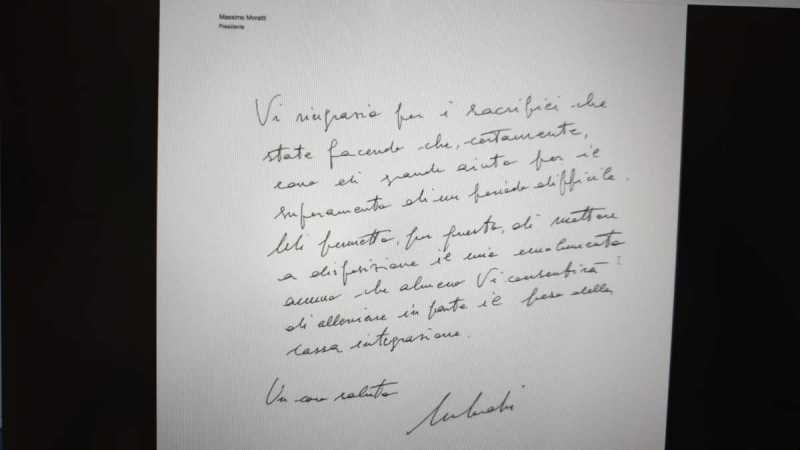 Massimo Moratti
Presidente
Vi ringrazio per i sacrifici che
state facendo che, certamente,
sono di grande aiuto per il
superamento di un periodo difficile.
Mi permetto, per questo, di mettere
a disposizione il mio emolumento
annuo che almeno Vi consentirà
di alleviare in parte il peso della
cassa integrazione.
Un caro saluto